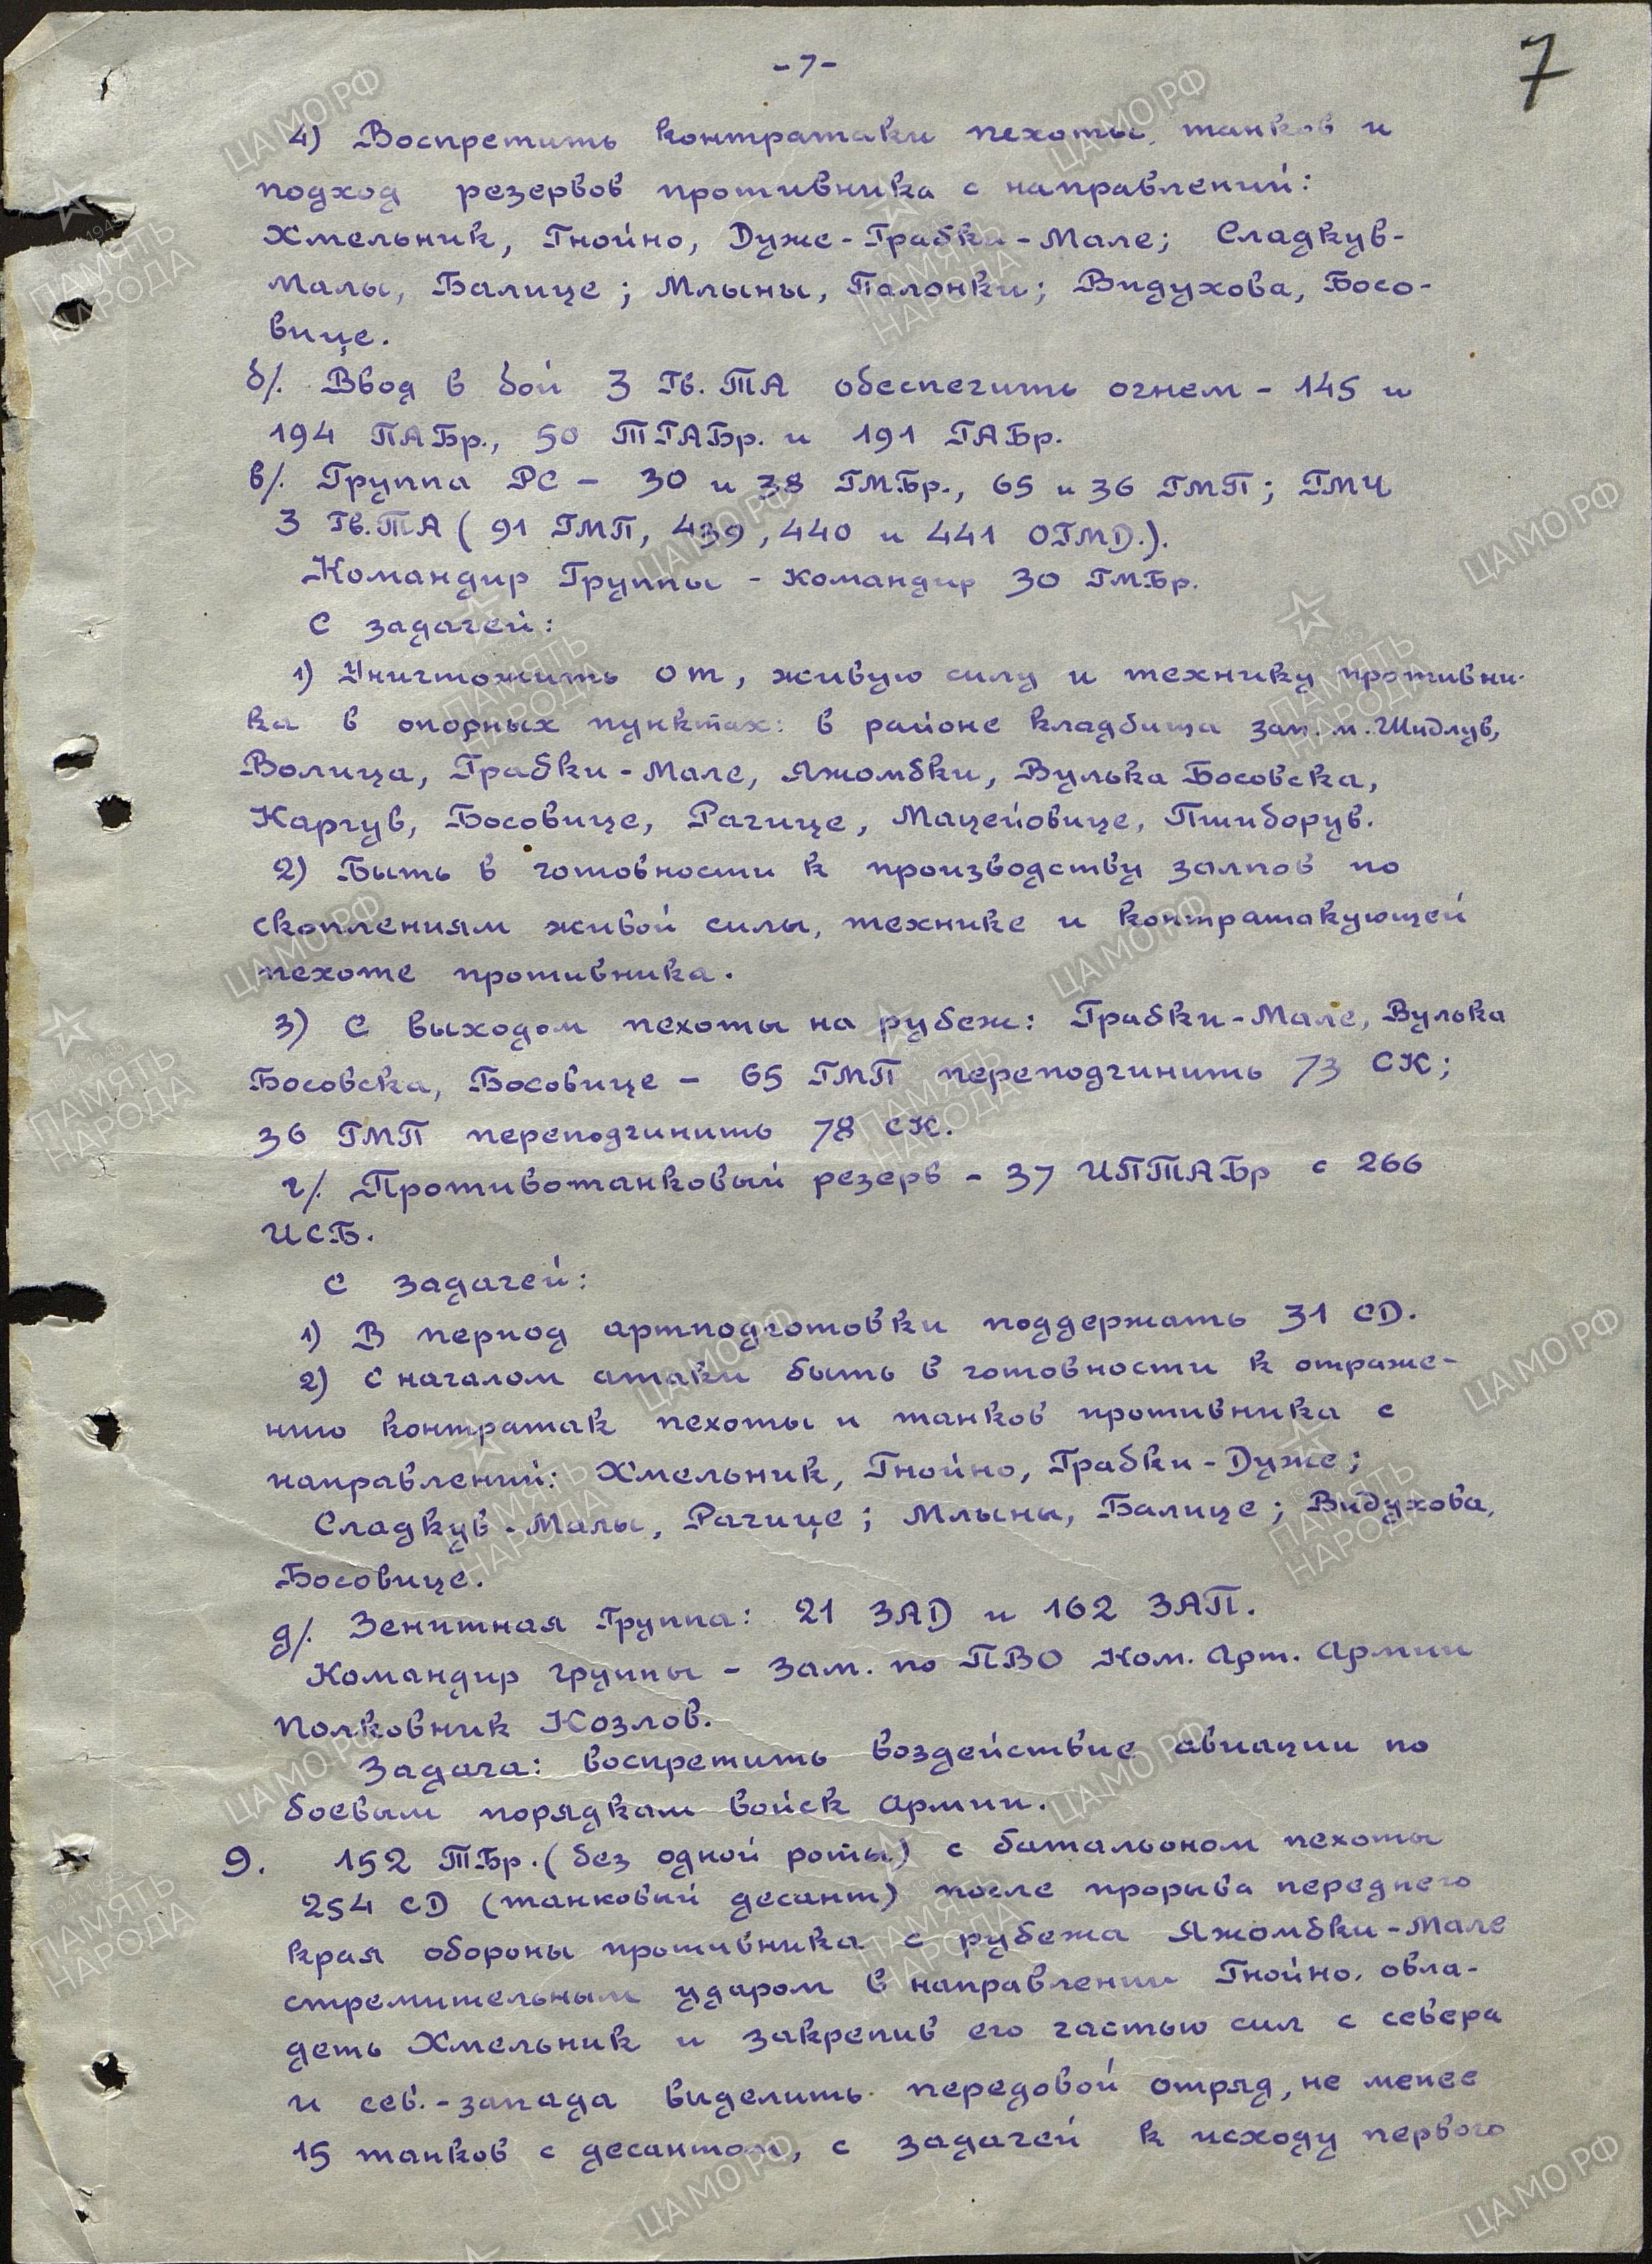 -7-
7
4) Воспретить контратаки пехоты, танков и
подход резервов противника с направлений:
Хмельник, Гнойно, Дуже-Грабки-Мале; Сладкув-
Малы, Балице; Млыны, Палонки; Видухова, Босо-
вице.
б/. Ввод в бой 3 Гв. ТА обеспечить огнем - 145 и
194 ПАБр., 50 ТГАБр. и 191 ГАБр.
в/. Группа РС - 30 и 38 ГМБр., 65 и 36 ГМП; ГМЧ
3 Гв.ТА (91 ГМП, 439, 440 и 441 ОГМД.).
Командир Группы - командир 30 ГМБр.
С задачей:
1) Уничтожить от, живую силу и технику противни-
ка в опорных пунктах: в районе кладбища зап. м. Шидлув,
Волица, Грабки-Мале, Яжомбки, Вулька Босовска,
Каргув, Босовице, Рачице, Мацейовице, Пшиборув.
2) Быть в готовности к производству залпов по
скоплениям живой силы, технике и контратакующей
пехоте противника.
3) С выходом пехоты на рубеж: Грабки-Мале, Вулька
Босовска, Босовице - 65 ГМП переподчинить 73 СК;
36 ГМП переподчинить 78 СК.
г/. Противотанковый резерв - 37 ИПТАБр с 266
ИСБ.
С задачей:
1) В период артподготовки поддержать 31 СД.
2) С началом атаки быть в готовности к отраже-
нию контратак пехоты и танков противника с
направлений: Хмельник, Гнойно, Грабки-Дуже;
Сладкув-Малы, Рачице; Млыны, Балице; Видухова,
Босовице.
д/. Зенитная Группа: 21 ЗАД и 162 ЗАП.
Командир группы - Зам. по ПВО Ком. Арт. Армии
Полковник Козлов.
Задача: воспретить воздействие авиации по
боевым порядкам войск Армии.
9. 152 ТБр. (без одной роты) с батальоном пехоты
254 СД (танковый десант) после прорыва переднего
края обороны противника с рубежа Яжомбки-Мале
стремительным ударом в направлении Гнойно, овла-
деть Хмельник и закрепив его частью сил с севера
и сев.-запада виделить передовой отряд, не менее
15 танков с десантом, с задачей к исходу первого
ЦАМО РФ
ПАМЯТЬ
НАРОДА